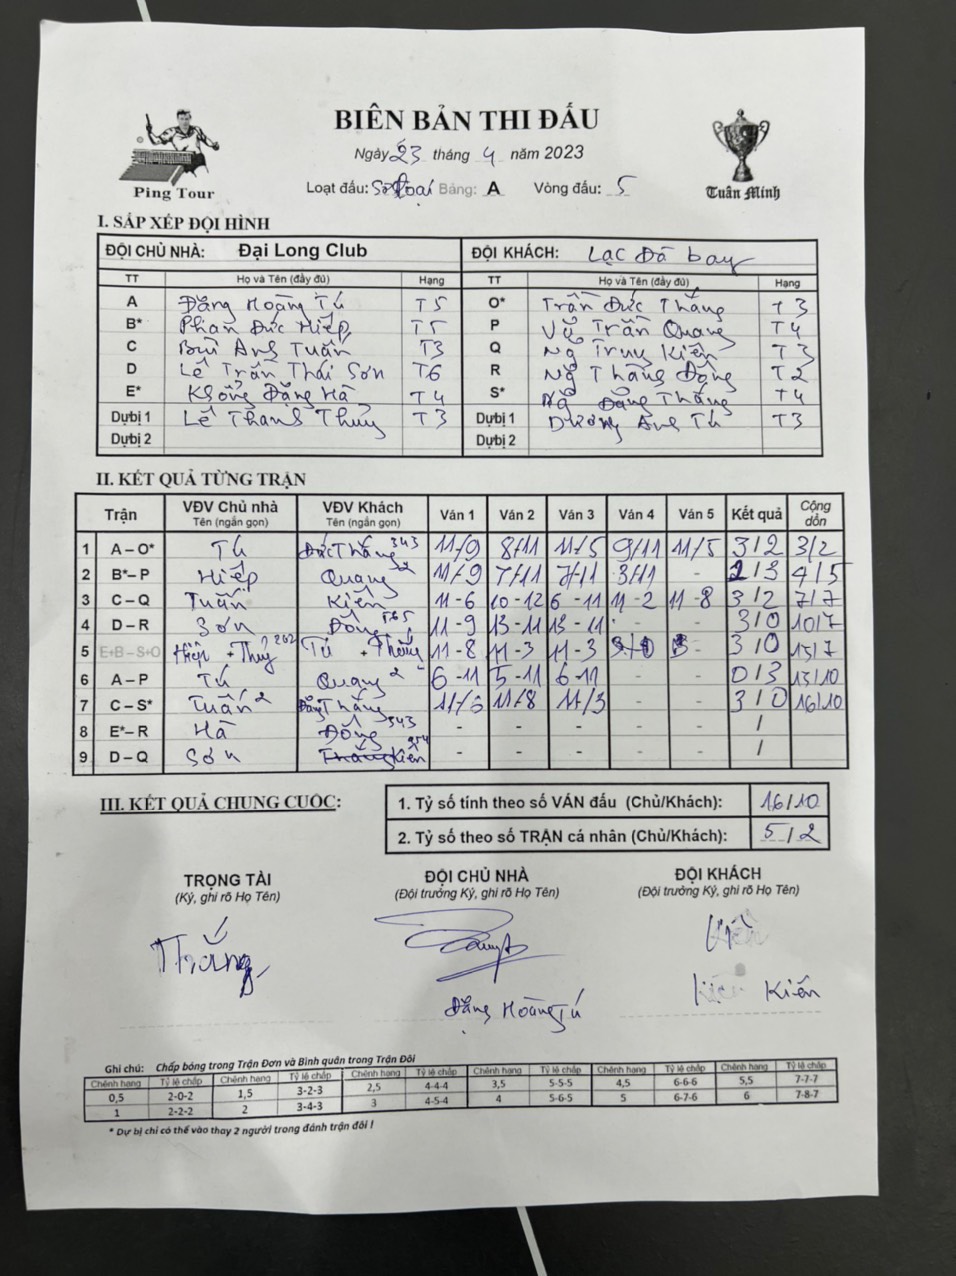 BIÊN BẢN THI ĐẤU
Ngày 23 tháng 4 năm 2023
Ping Tour
Loạt đấu: Sơ loại Bảng: A Vòng đấu: 5
Tuân Minh
I. SẮP XẾP ĐỘI HÌNH
ĐỘI CHỦ NHÀ: Đại Long Club ĐỘI KHÁCH: Lạc Đà bay
TT Họ và Tên (đầy đủ) Hạng TT Họ và Tên (đầy đủ) Hạng
A Đặng Hoàng Tú T5 O* Trần Đức Thắng T3
B* Phan Đức Hiếp T5 P Vũ Trần Quang T4
C Bùi Anh Tuấn T3 Q Ng Trung Kiên T3
D Lê Trần Thái Sơn T6 R Ng Thăng Đông T2
E* Khổng Đăng Hà T4 S* Ng Đăng Thắng T4
Dựbị 1 Lê Thanh Thủy T3 Dựbị 1 Dương Anh Tú T3
Dựbị 2 Dựbị 2
II. KẾT QUẢ TỪNG TRẬN
Trận VĐV Chủ nhà Tên (ngắn gọn) VĐV Khách Tên (ngắn gọn) Ván 1 Ván 2 Ván 3 Ván 4 Ván 5 Kết quả Cộng dồn
1 A – O* Tú Đức Thắng 343 11/9 8/11 11/5 9/11 11/5 3/2 3/2
2 B*– P Hiếp Quang 2 11/9 7/11 7/11 3/11 - 1/3 4/5
3 C – Q Tuấn Kiên 11-6 10-12 6-11 11-2 11-8 3/2 7/7
4 D – R Sơn Đông 565 11-9 13-11 13-11 - - 3/0 10/7
5 E+B – S+O Hiếp + Thủy 262 Tú + Thắng 11-8 11-3 11-3 3/0 13/7
6 A – P Tú Quang 2 6-11 5-11 6-11 - - 0/3 13/10
7 C – S* Tuấn 2 Đăng Thắng 11/6 11/8 11/3 - - 3/0 16/10
8 E*– R Hà Đông 343 - - - - - /
9 D – Q Sơn Kiên 454 - - - - - /
III. KẾT QUẢ CHUNG CUỘC:
1. Tỷ số tính theo số VÁN đấu (Chủ/Khách): 16/10
2. Tỷ số theo số TRẬN cá nhân (Chủ/Khách): 5/2
TRỌNG TÀI ĐỘI CHỦ NHÀ ĐỘI KHÁCH
(Ký, ghi rõ Họ Tên) (Đội trưởng Ký, ghi rõ Họ Tên) (Đội trưởng Ký, ghi rõ Họ Tên)
Thắng Kiên
Đặng Hoàng Tú Kiên
Ghi chú: Chấp bóng trong Trận Đơn và Bình quân trong Trận Đôi
Chênh hạng Tỷ lệ chấp Chênh hạng Tỷ lệ chấp Chênh hạng Tỷ lệ chấp Chênh hạng Tỷ lệ chấp Chênh hạng Tỷ lệ chấp Chênh hạng Tỷ lệ chấp
0,5 2-0-2 1,5 3-2-3 2,5 4-4-4 3,5 5-5-5 4,5 6-6-6 5,5 7-7-7
1 2-2-2 2 3-4-3 3 4-5-4 4 5-6-5 5 6-7-6 6 7-8-7
* Dự bị chỉ có thể vào thay 2 người trong đánh trận đôi !